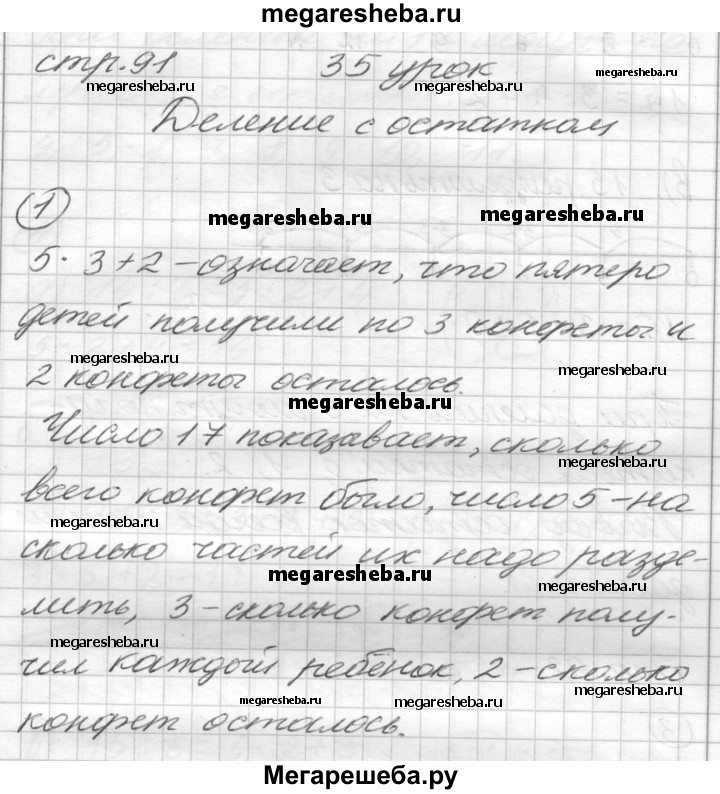 megaresheba.ru
стр.91 35 урок
megaresheba.ru megaresheba.ru megaresheba.ru
Деление с остатком
1
megaresheba.ru megaresheba.ru
5·3+2 – означает, что пятеро
детей получили по 3 конфеты и
megaresheba.ru megaresheba.ru
2 конфеты осталось.
megaresheba.ru
Число 17 показывает, сколько
megaresheba.ru
всего конфет было, число 5 – на
megaresheba.ru
сколько частей их надо разде-
megaresheba.ru megaresheba.ru
лить, 3 – сколько конфет полу-
megaresheba.ru
чил каждый ребёнок, 2 – сколько
megaresheba.ru megaresheba.ru megaresheba.ru
конфет осталось.
Мегарешеба.ру